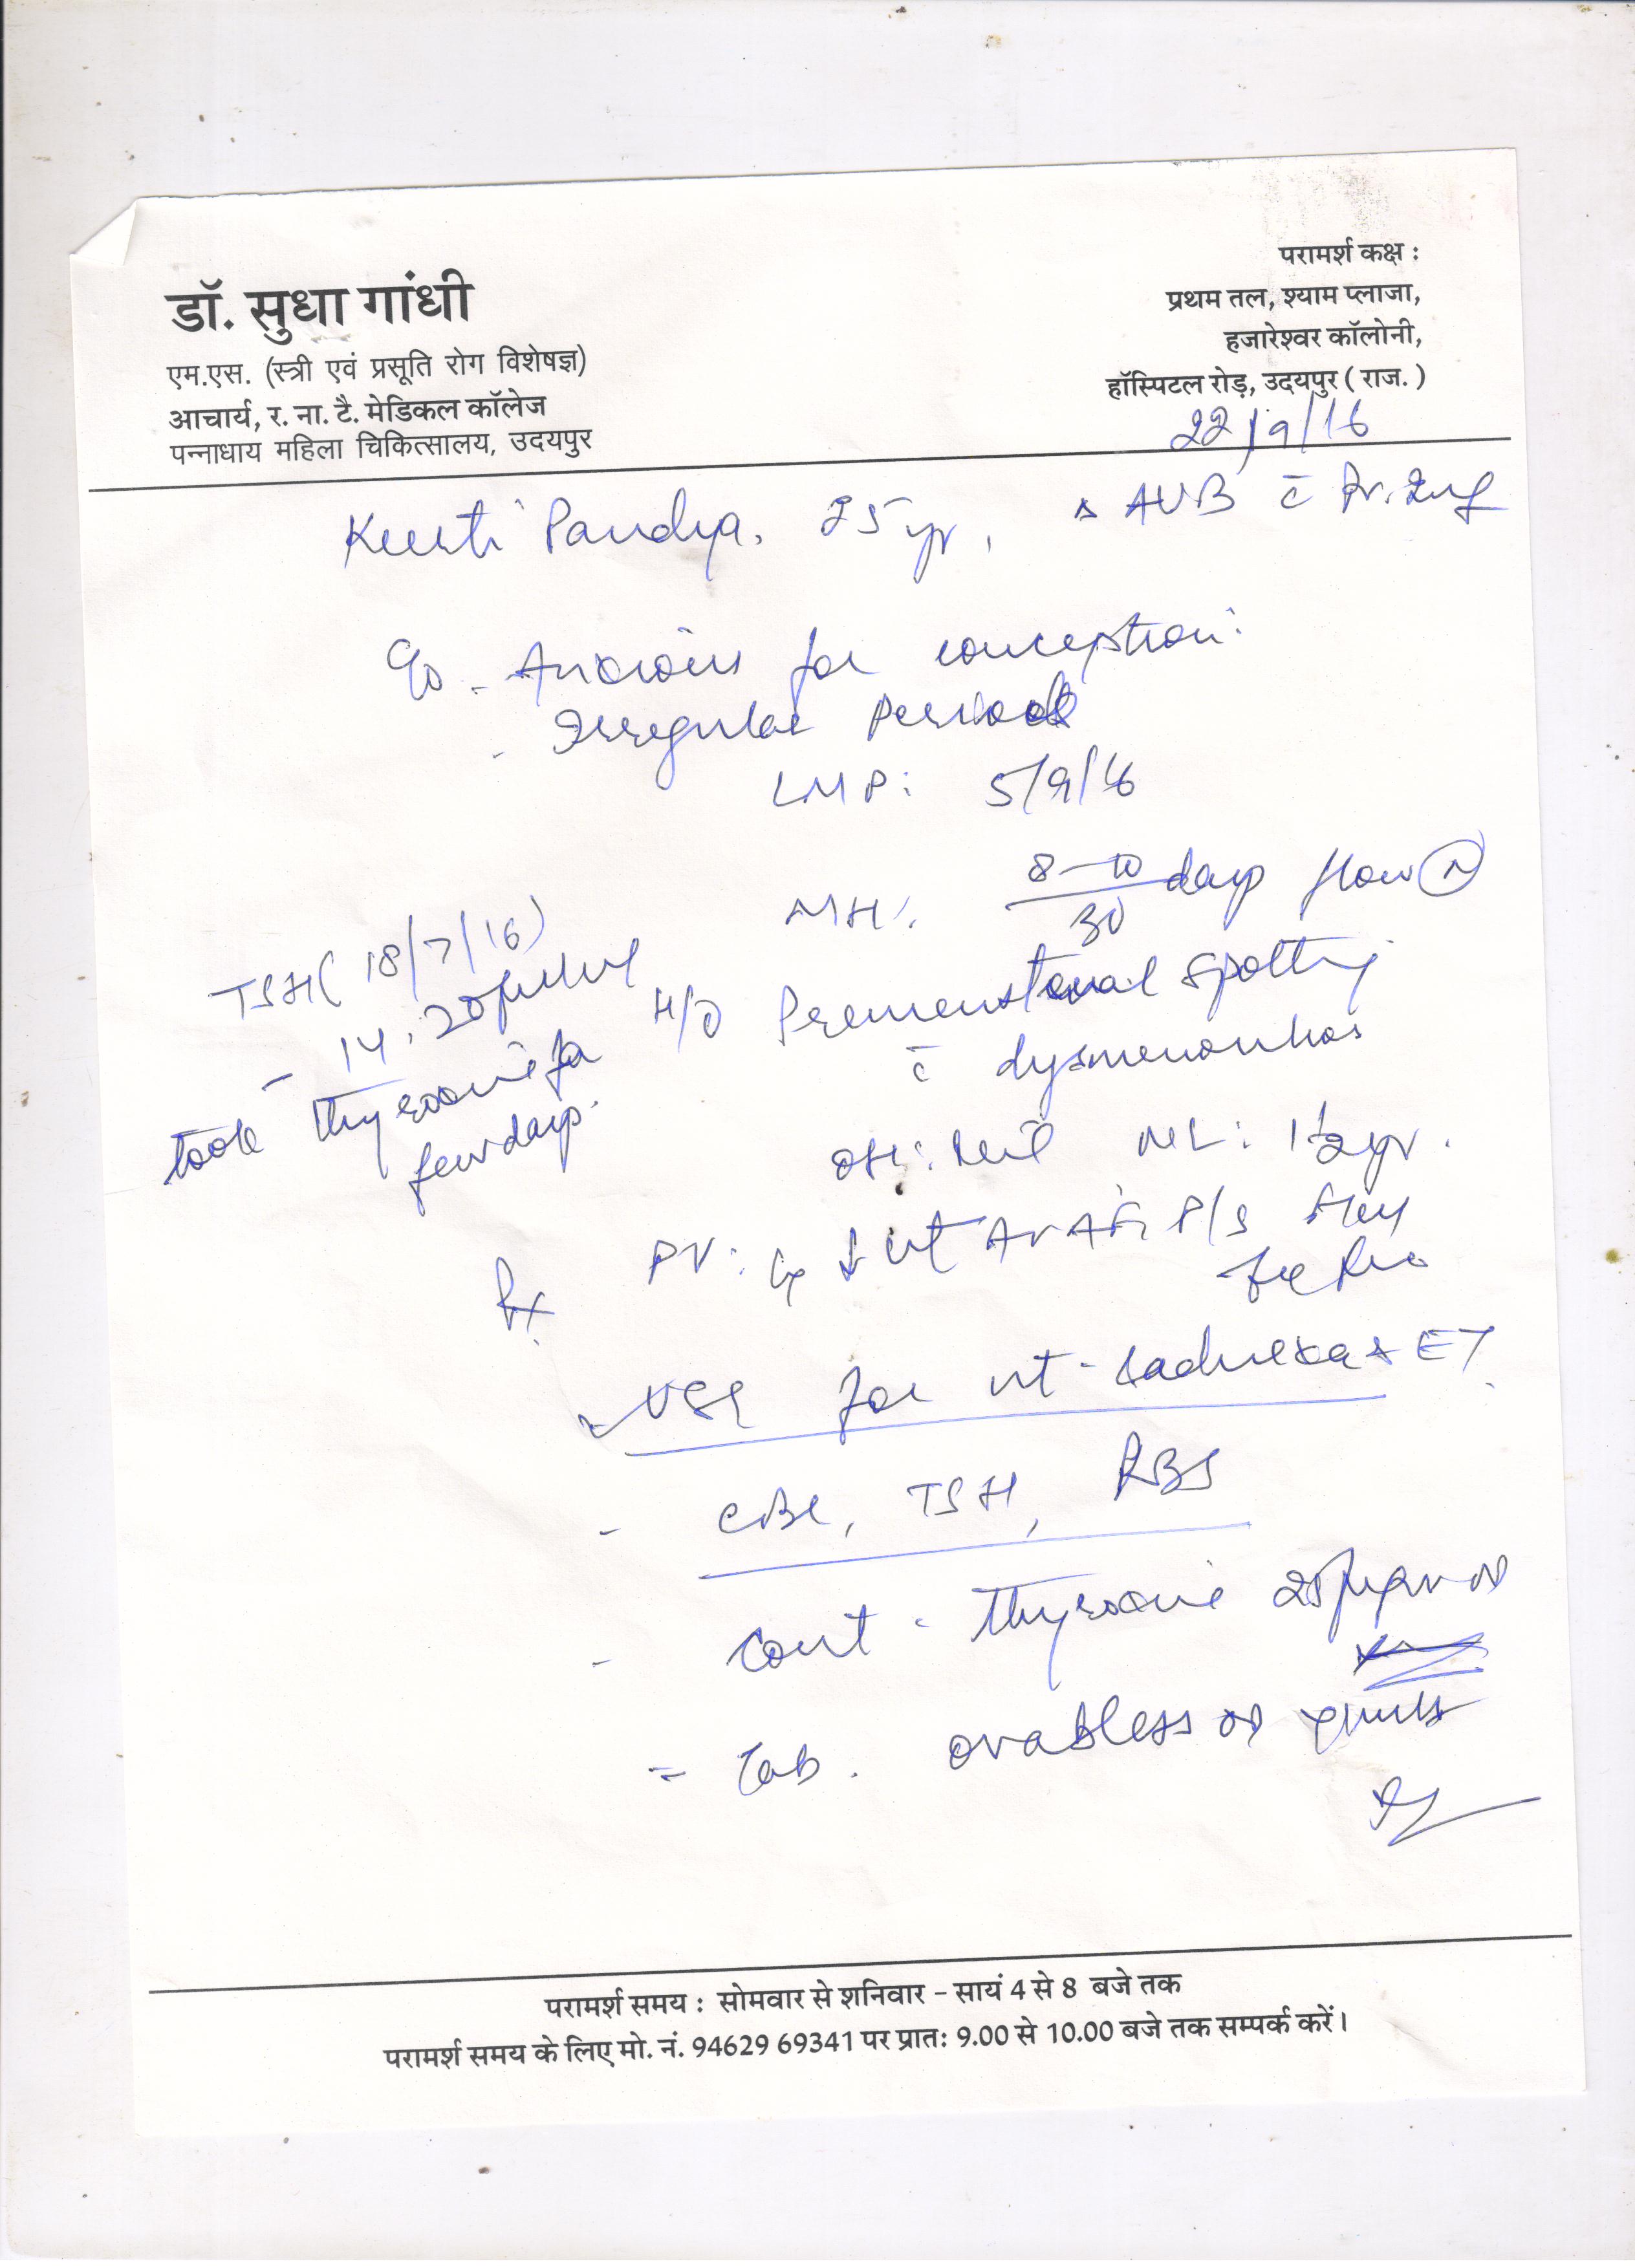 डॉ. सुधा गांधी
एम.एस. (स्त्री एवं प्रसूति रोग विशेषज्ञ)
आचार्य, र. ना. टै. मेडिकल कॉलेज
पन्नाधाय महिला चिकित्सालय, उदयपुर
परामर्श कक्ष :
प्रथम तल, श्याम प्लाजा,
हजारेश्वर कॉलोनी,
हॉस्पिटल रोड़, उदयपुर ( राज. )
22/9/16
Pandya. 25 yr. AUB c̄
c/o - Anxious for conception.
- Irregular Periods
LMP: 5/9/16
MH: 8-10/30 days flow (N)
TSH (18/7/16)
- 14.20
took thyroxine for
few days.
H/O Premenstrual Spotting
c̄ dysmenorrhoea
OH: Nil ML: 1½ yr.
PV: Cx ↓ Ut AV AF, P/S
Rx
- USG for ut - adnexa & ET
- CBC, TSH, RBS
- Cont - Thyroxine 25 OD
- Tab. ovabless OD
परामर्श समय : सोमवार से शनिवार - सायं 4 से 8 बजे तक
परामर्श समय के लिए मो. नं. 94629 69341 पर प्रातः 9.00 से 10.00 बजे तक सम्पर्क करें।